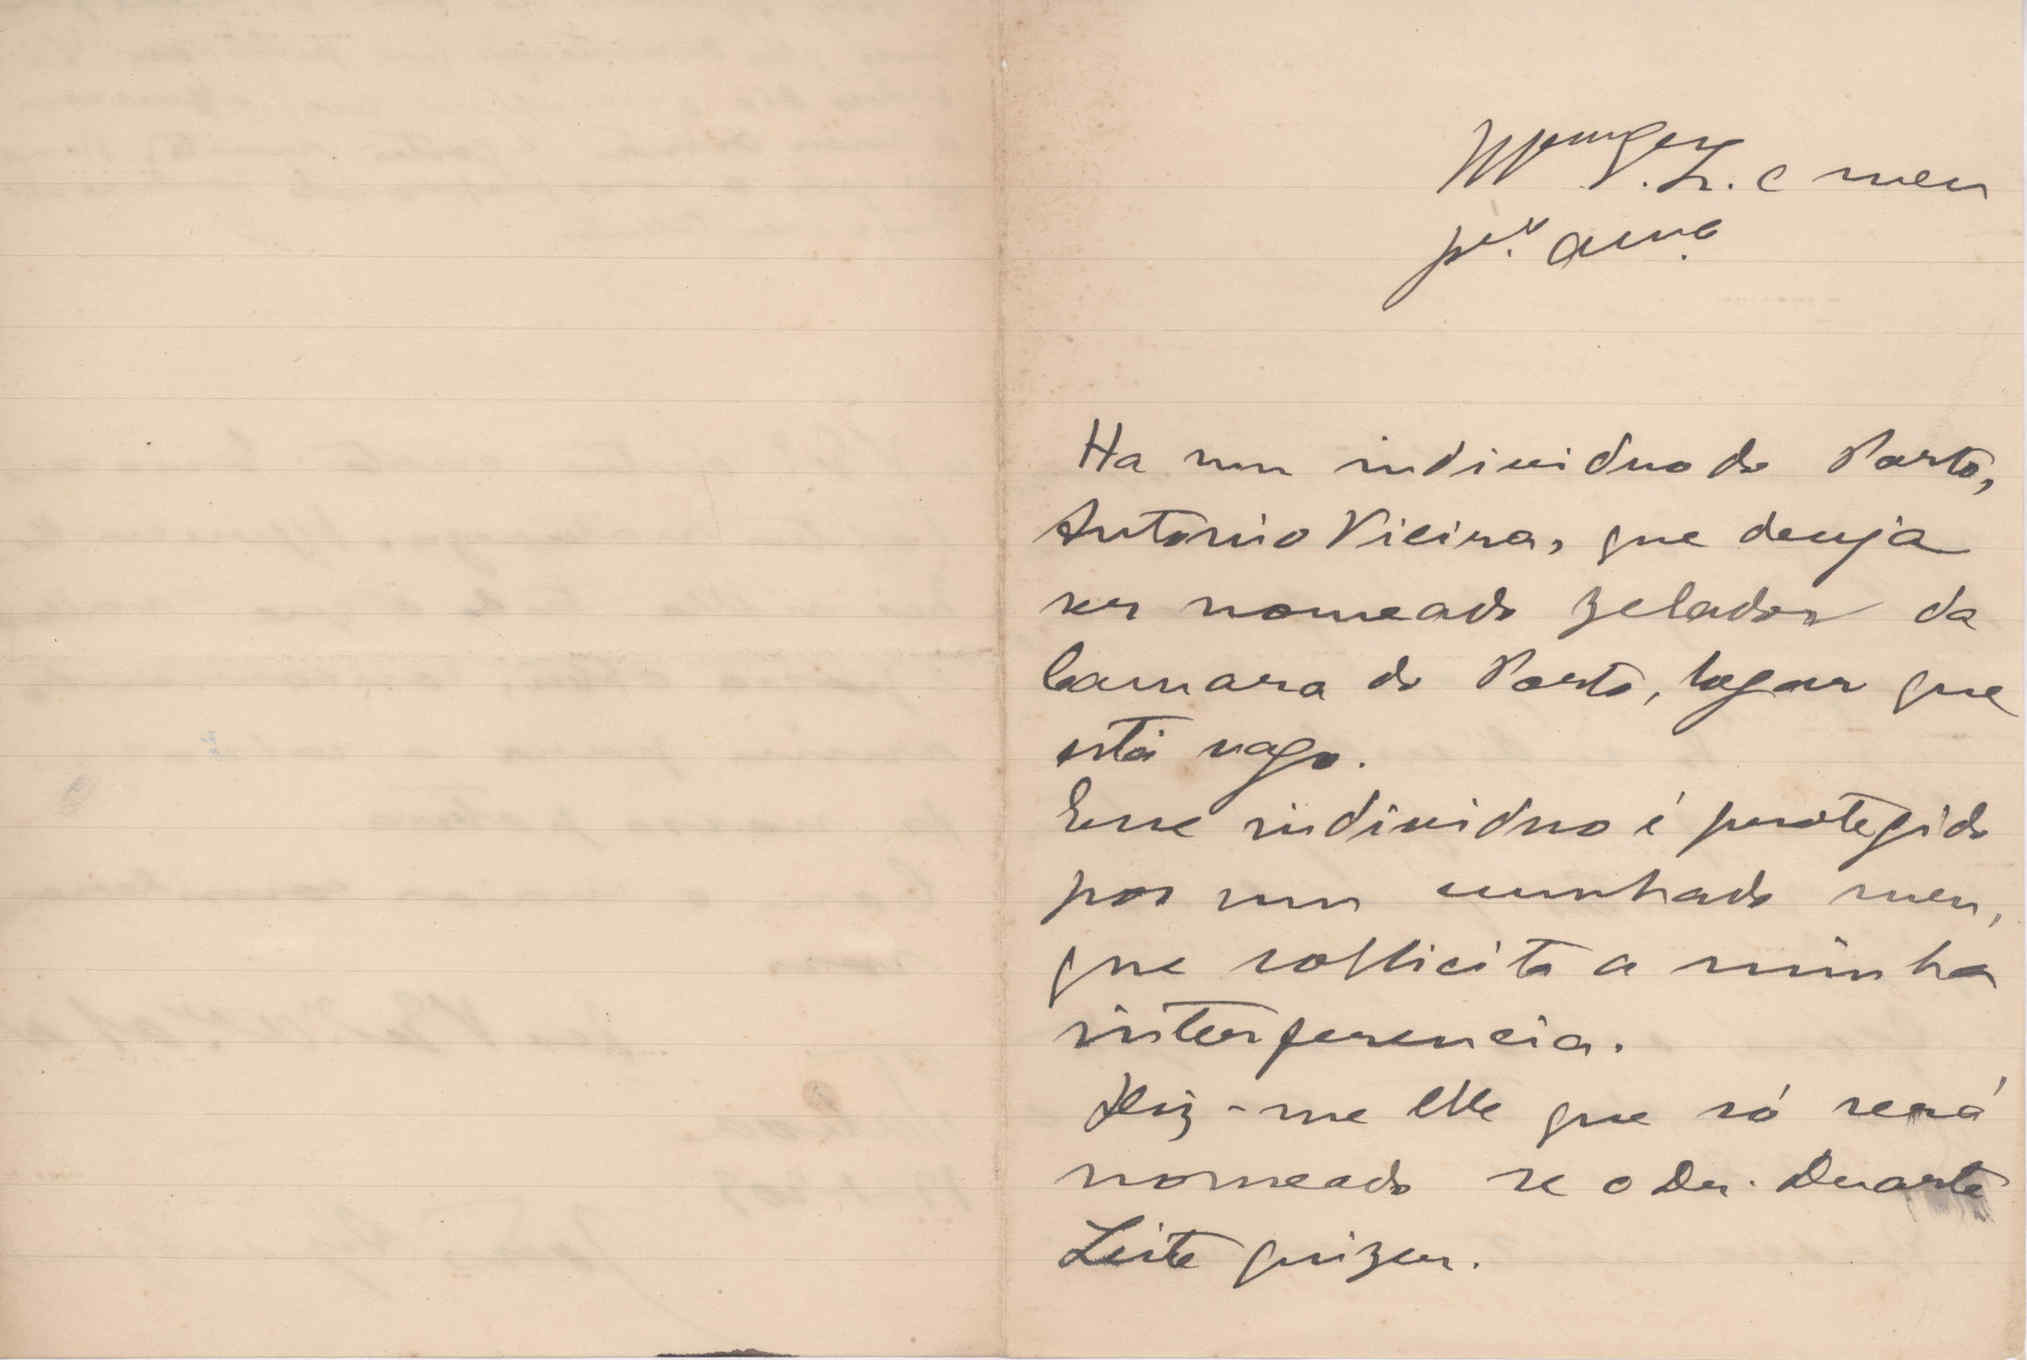 e meu
Ha um individuo do Porto,
Antonio Vieira, que deseja
ser nomeado zelador da
Camara do Porto, logar que
está vago.
Esse individuo é protegido
por um cunhado meu,
que sollicita a minha
interferencia.
Diz-me elle que só será
nomeado se o Dr. Duarte
Leite quizer.